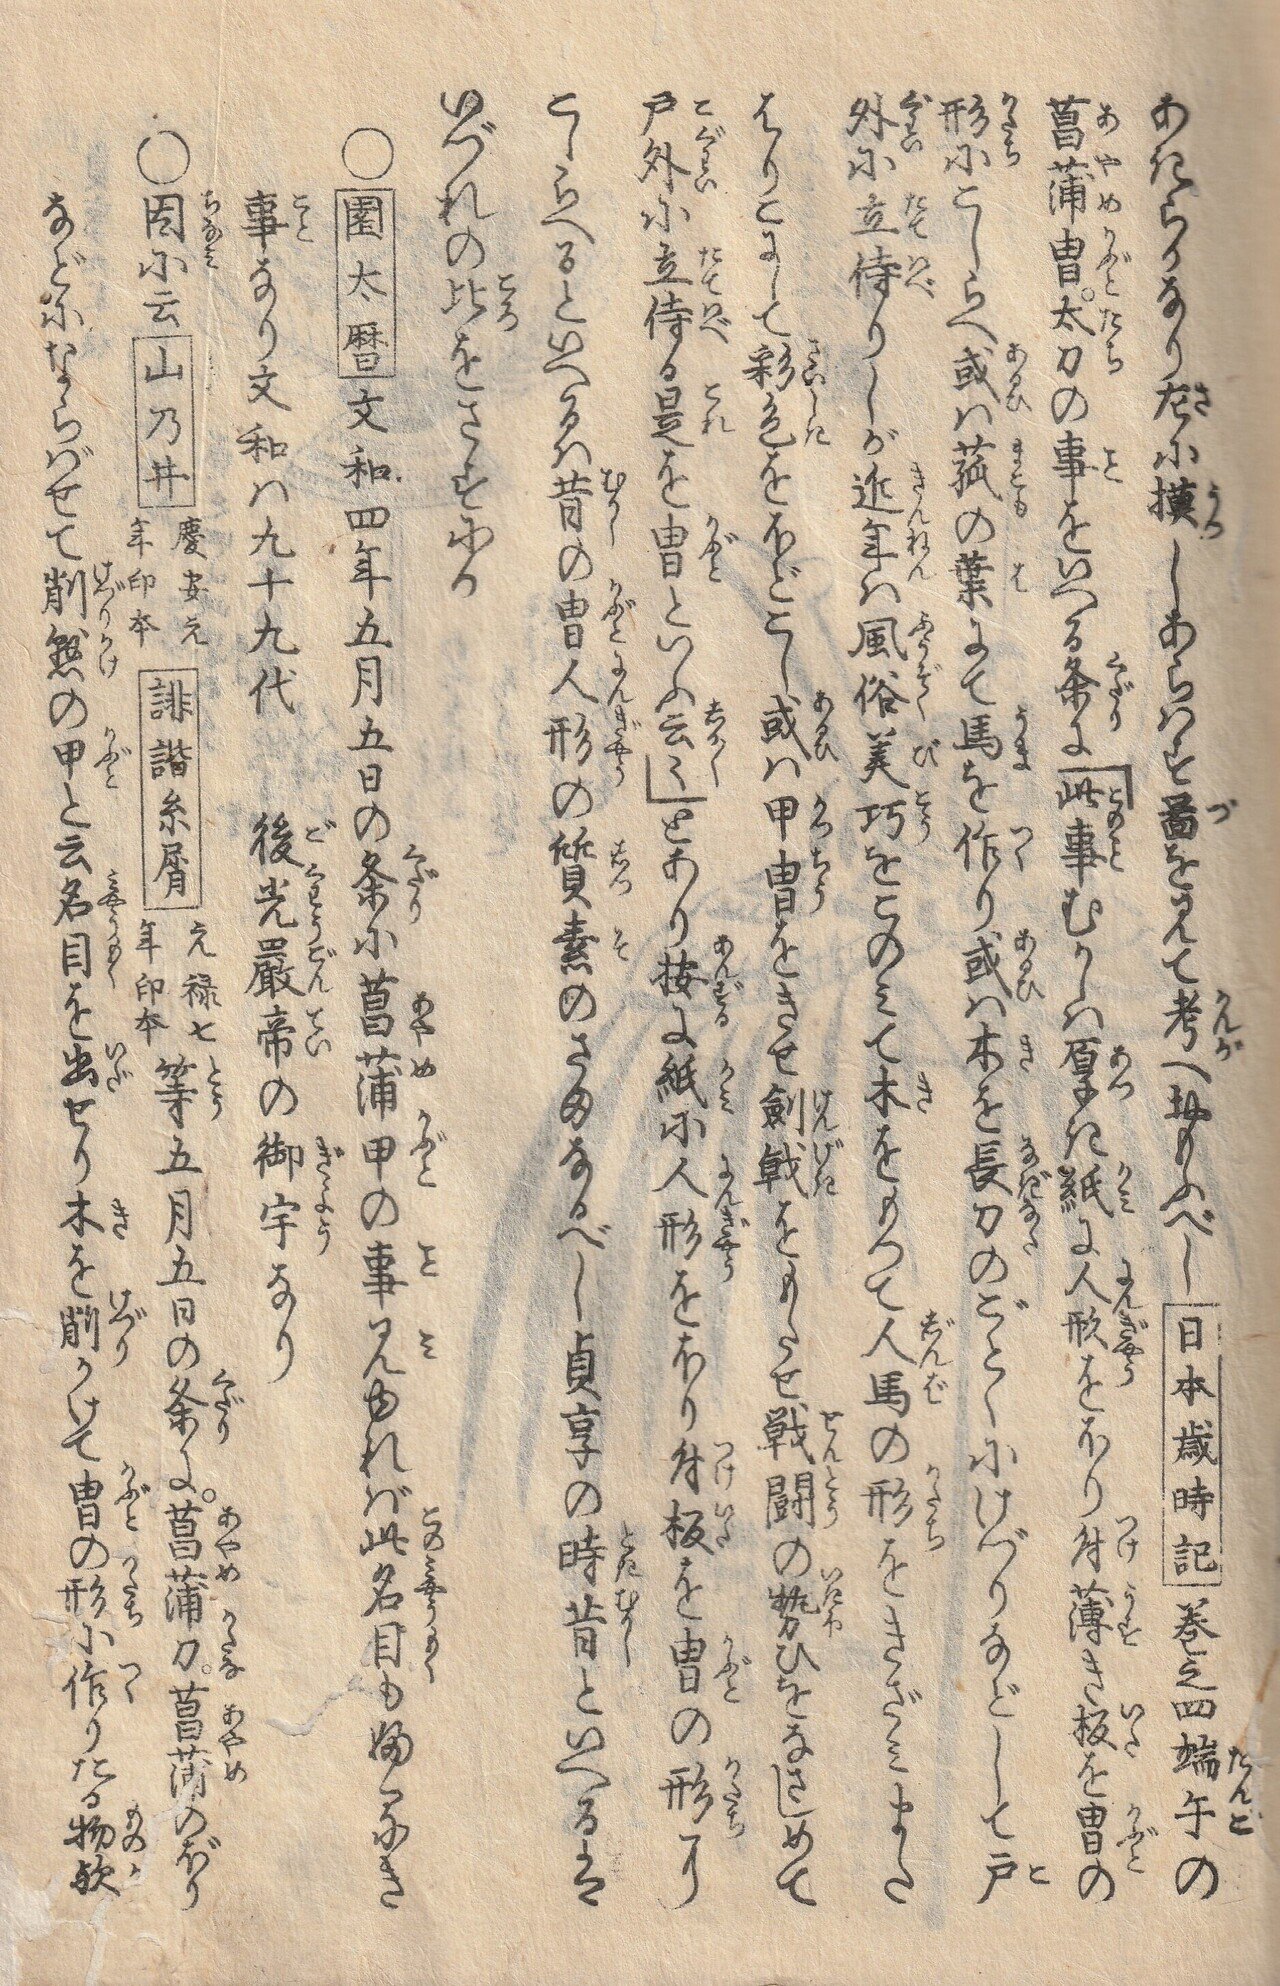 あきらかなり左に摸しあらはす図を見て考へ知るべし日本歳時記巻之四端午の
菖蒲冑。太刀の事をいへる条に「此事むかしハ厚き紙に人形をほり付薄き板を冑の
形にこしらへ或ハ菰の葉にて馬を作り或ハ木を長刀のごとくにけづりなどして戸
外に立侍りしが近年ハ風俗美巧をこのミて木をもつて人馬の形をきざミまた
はりこにして彩色をほどこし或ハ甲冑をきせ剣戟をもたせ戦闘の勢ひをなさしめて
戸外に立侍る是を冑といふ云〻」とあり按に紙に人形をほり付板を冑の形に
こしらへるといへるハ昔の冑人形の質素のさまなるべし貞享の時昔といへるは
いづれの比をさすにか
○園太暦文和四年五月五日の条に菖蒲甲の事見ゆれば此名目も
事なり文和ハ九十九代　後光厳帝の御宇なり
○因に云山乃井慶安元年印本誹諧糸屑元禄七年印本等五月五日の条に。菖蒲刀。菖蒲のぼり
などにならばせて削懸の甲と云名目を出せり木を削かけて冑の形に作りたる物歟